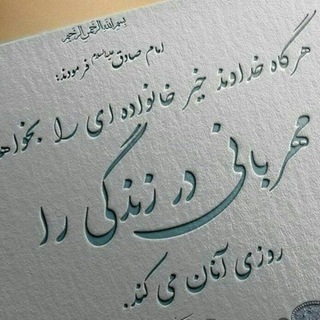 بسم الله الرحمن الرحیم
امام صادق علیه‌السلام فرمودند:
هرگاه خداوند خیر خانواده ای را بخواه
مهربانی در زندگی را
روزی آنان می کند.